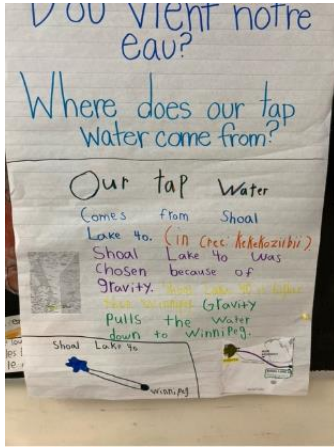 D'où vient notre
eau?
Where does our tap
water come from?
Our tap Water
Comes from Shoal
Lake 40. (in Cree Kekekoziibii)
Shoal Lake 40 was
chosen because of
gravity. Shoal Lake 40 is
Gravity
Pulls the water
down to Winnipeg.
Shoal Lake 40
Winnipeg